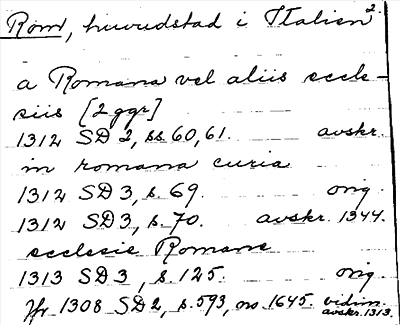 Rom, huvudstad i Italien 2.
a Romana vel aliis eccle-
siis [2 ggr]
1312 SD 3, ss 60, 61. avskr.
in romana curia
1312 SD 3, s. 69. orig.
1312 SD 3, s. 70. avskr. 1344.
ecclesie Romane
1313 SD 3, s. 125. orig.
Jfr 1308 SD 2, s. 593, no 1645. vidim. avskr. 1313.